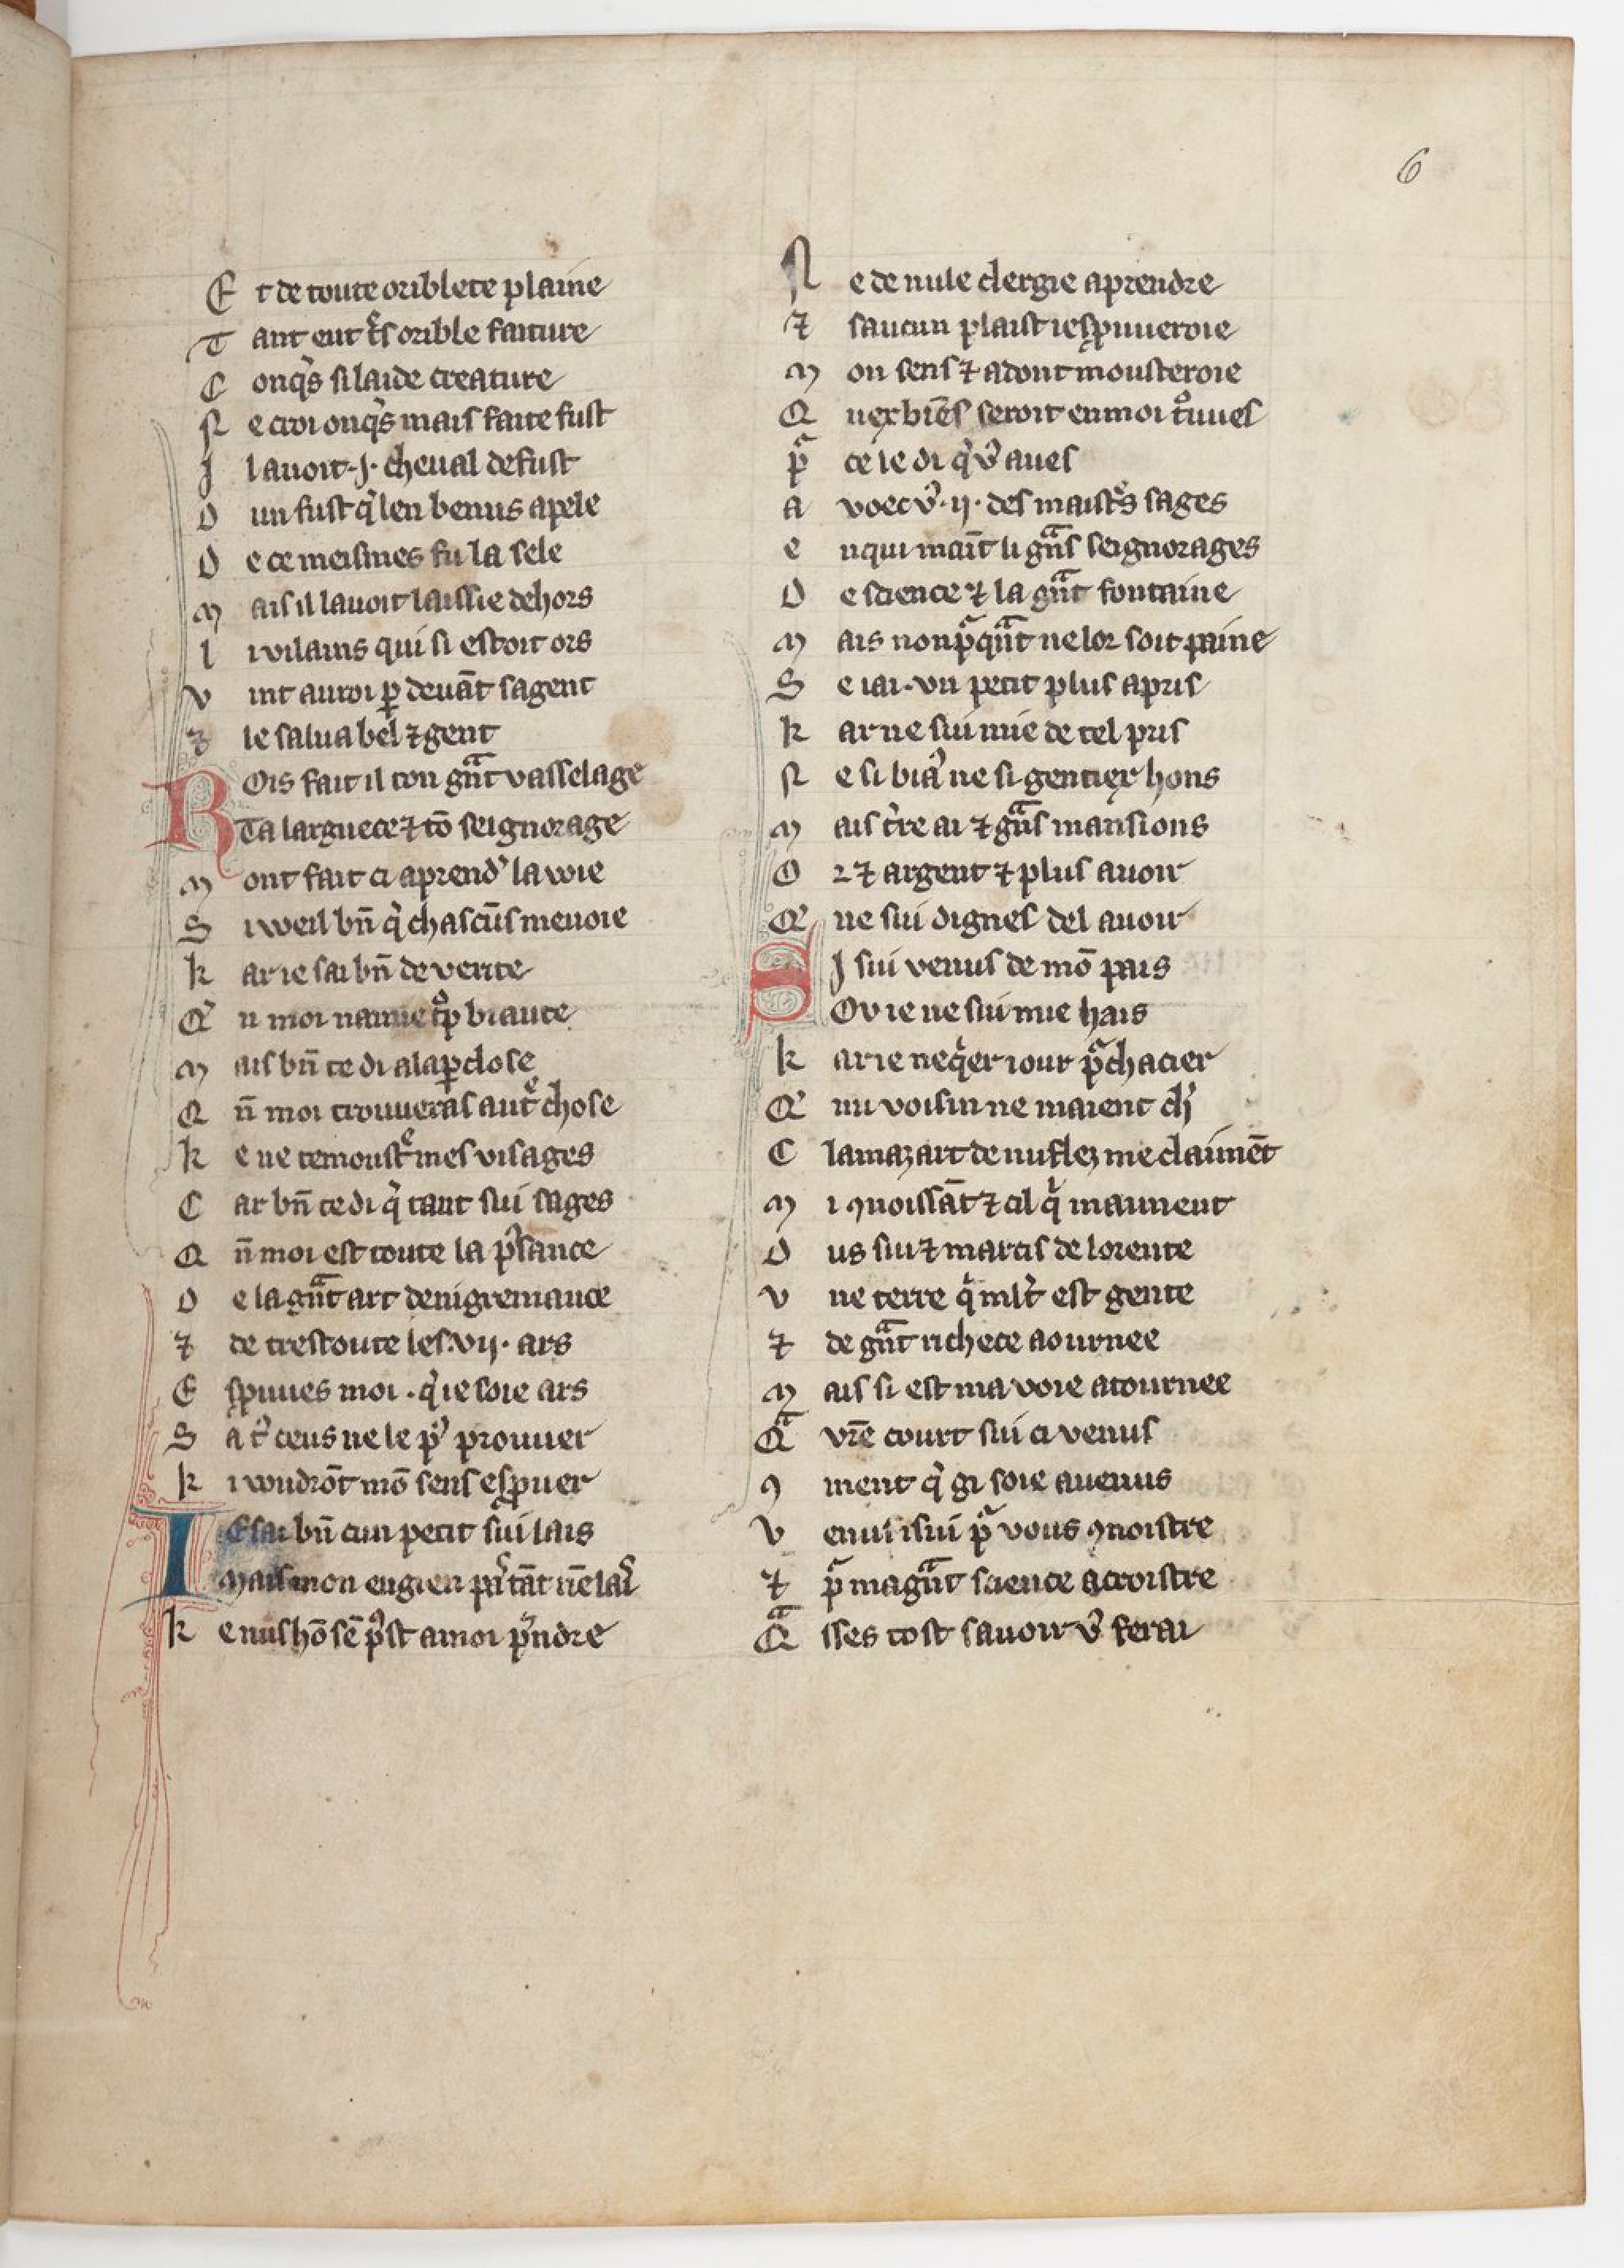 6
E t de toute oriblete plaine
T ant eut t͛s orible faiture
C onq̾s si laide creature
N e croi onq̾s mais faite fust
J l auoit .j. cheual de fust
D un fust q̾ len benus apele
D e ce meismes fu la sele
M ais il lauoit laissie dehors
L i vilains qui si estoit ors
V int au roi ꝑ deuãt sa gent
⁊ le salua bel ⁊ gent
R Ois fait il ton gͣnt vasselage
Ta larguece ⁊ tõ seignorage
M ont fait ci aprend̾ la voie
S i weil bñ q̾ chascũs me uoie
K ar ie sai bñ de verite
Q̾ n moi na mie tͦp biaute
M ais bñ te di a la ꝑclose
Q ñ moi trouueras autͤ chose
K e ne te moustͤ mes visages
C ar bñ te di q̾ tant sui sages
Q ñ moi est toute la p̾sance
D e la gͣnt art de nigremance
⁊ de trestoute les .vij. ars
E sꝓuues moi . q̾ ie soie ars
S ͣ a t̾ ceus ne le p̾ prouuer
K i voudrõt mõ sens esꝓuer
I E sai bñ cun petit sui lais
Mais mon engien pͬ tãt nẽ lais
K e nus hõ sẽ p̾st a moi p̾ndre
N e de nule clergie aprendre
⁊ saucun plaist ie sꝓuueroie
M on sens ⁊ adont mousteroie
Q uex biẽs seroit en moi tͦuues
pͬ ce le di q̾ v̾ aues
A voec v̾ .ij. des maistͤs sages
E nqui maĩt li gͣns seignorages
D e science ⁊ la gͣnt fontaine
M ais non pͬqͣnt ne lor soit paine
S e iai . vn petit plus apris
K ar ne sui mie de tel pris
N e si biaͧ ne si gentiex hons
M ais t̾re ai ⁊ gͣns mansions
O r ⁊ argent ⁊ plus auoir
Q̾ ne sui dignes del auoir
S J sui venus de mõ pais
Ov ie ne sui mie hais
K ar ie ne q̾er iour pͬchacier
Q̾ mi voisin ne maient ch̾
C lamazart de nuflez me claimẽt
M i ꝯnoissãt ⁊ cil q̾ mainnent
D us sui ⁊ marcis de lorente
V ne terre q̾ ml̾t est gente
⁊ de gͣnt richece aournee
M ais si est ma voie atournee
Qͣ vr̃e court sui ci venus
ꝯ ment q̾ gi soie auenus
V enus i sui pͬ vous ꝯnoistre
⁊ pͬ ma gͣnt science acroistre
Qͣ sses tost sauoir v̾ ferai